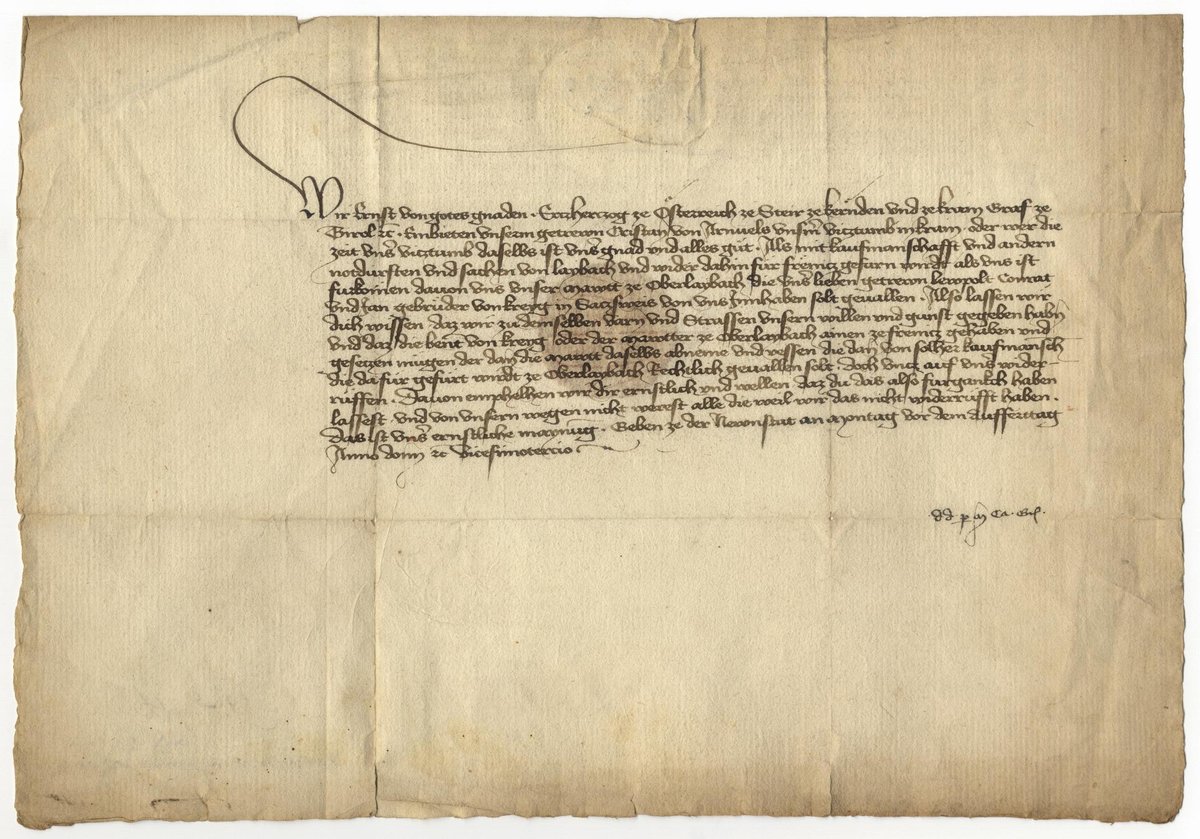 Wir Ernst von gotes gnaden · Ertzherczog ze Österreich ze Steir ze kernden vnd ze krain Graf ze
Tirol ꝛc · Embieten vnserm getrewn Cristan von Arnuels vnsm̄ vitztumb in krain · oder wer die
zeit vnß vitztumb daselbs ist vnß gnad vnd alles gůt · Als mit kaufmanschafft vnd andern
notdursten vnd sachen von laybach vnd wider dahin für fremtz gefürn wirdt als vns ist
fürkomen dauon vns vnser Mawtt ze Oberlaybach die vnß lieben getrewn lewpolt Conrat
vnd Jan gebrüder von kreyg in Satzsweis von vns Innhaben solt geuallen · Also lassen wir
dich wissen daz wir zu demselben varn vnd Strassen vnsern willen vnd gunst gegeben habn̄
vnd daz die ben̄t von kreyg oder der Mawtter ze Oberlaybach ainen ze fremtz gehaben vnd
gesetzen mügen der dan̄ die Mawtt daselbs abneme vnd vessen die dan̄ von solher kaufmansch
die da für gefürt wirdt ze Oberlaybach Rechtlich geuallen solt · doch vntz auf vns wider-
rüffen · Dauon emphelhen wir dir ernstlich vnd wellen daz du das also fürgankch haben
lassest · vnd von vnsern wegen nicht werest alle die weil wir das nicht widerrüfft haben ·
das ist vnß ernstliche maynūg · Geben ze der Newnstat an Montag vor dem Auffertag
Anno dom̄ ꝛc vicesimotercio
dd p m Ca · Gr̄ ·